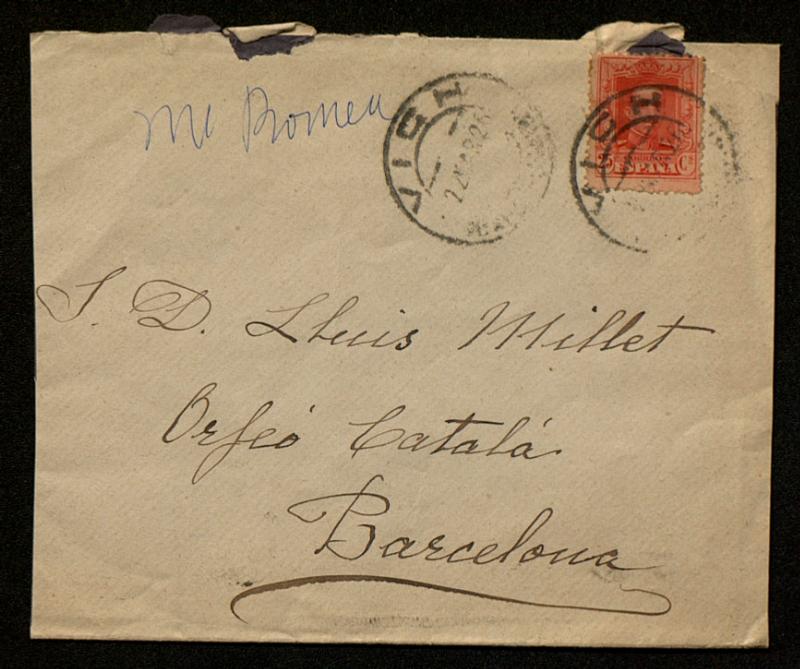 Mn Romeu
VICH
22 MAR 26
VICH
25 Cs
ESPAÑA
S. D. Lluis Millet
Orfeó Catalá
Barcelona